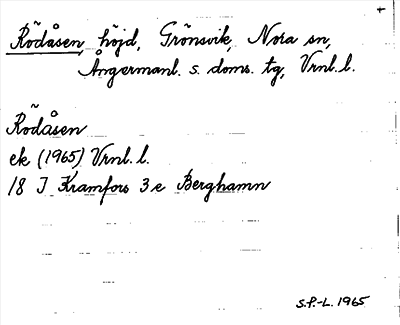 +
Rödåsen, höjd, Grönsvik, Nora sn,
Ångermanl. s. doms. tg, Vrnl. l.
Rödåsen
ek (1965) Vrnl. l.
18 I Kramfors 3 e Berghamn
S.P.-L. 1965